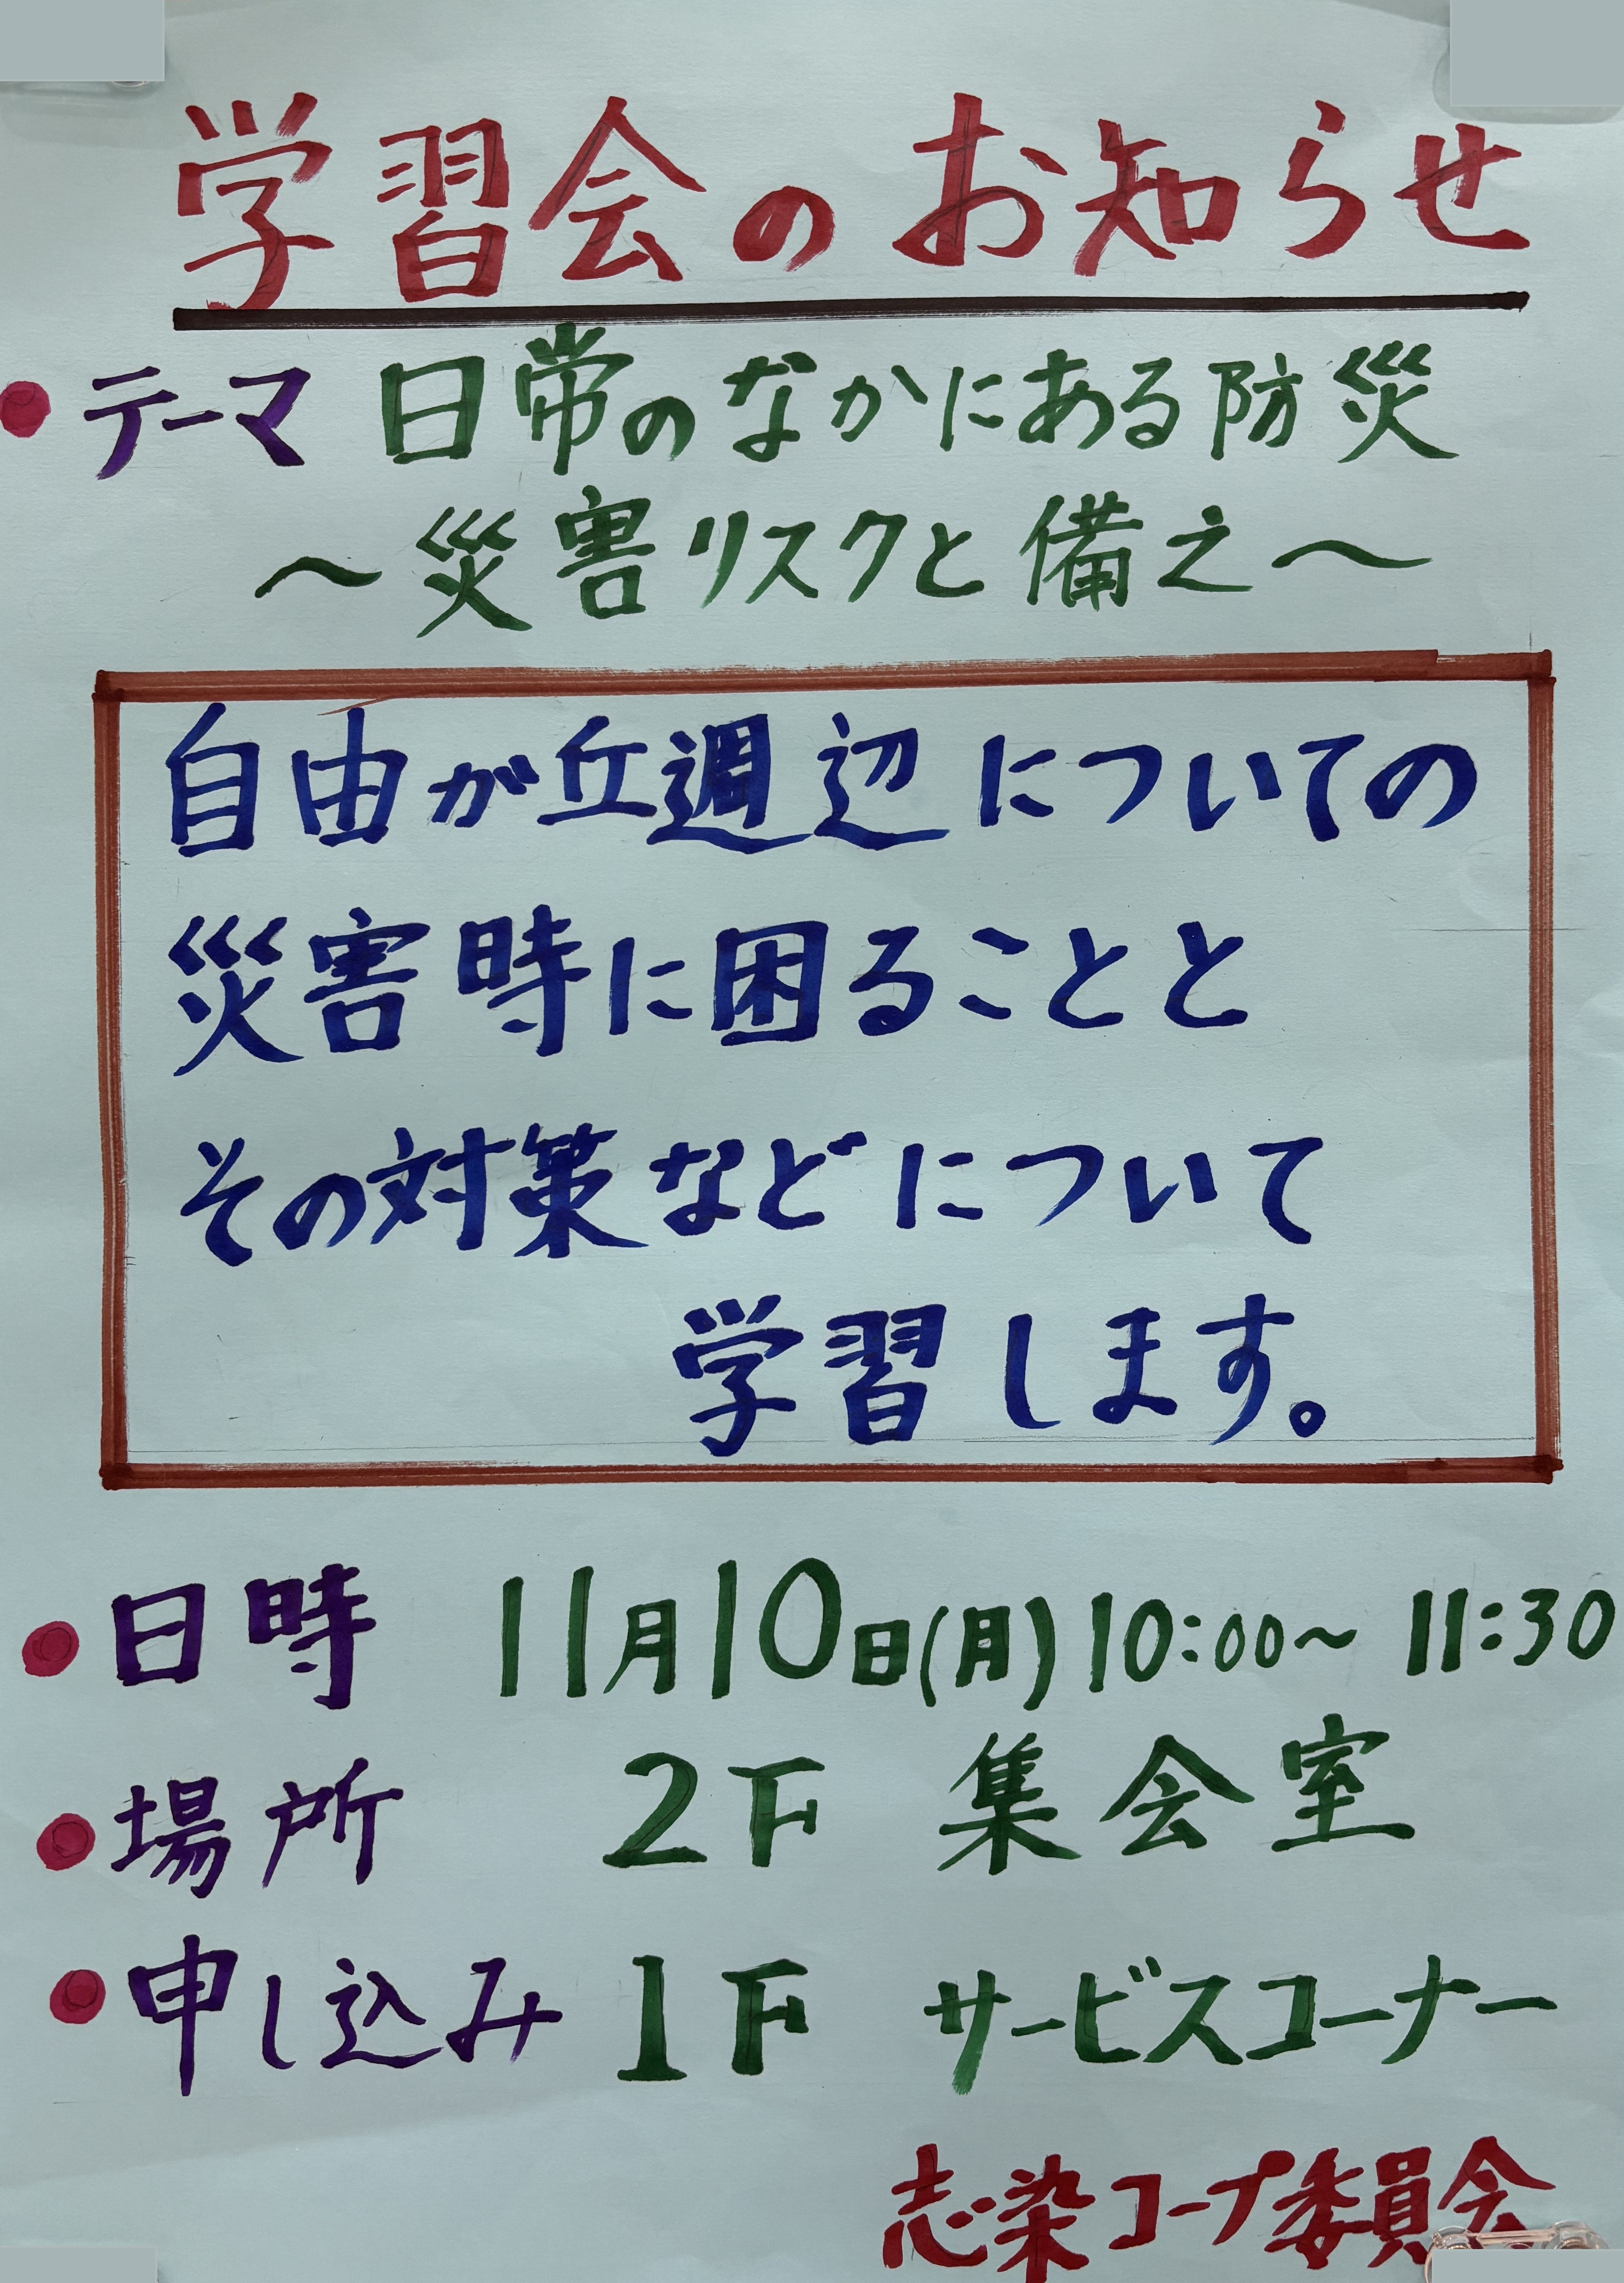 学習会のお知らせ
●テーマ 日常のなかにある防災
～災害リスクと備え～
自由が丘週辺についての
災害時に困ることと
その対策などについて
学習します。
●日時 11月10日(月) 10:00～11:30
●場所 2F 集会室
●申し込み 1F サービスコーナー
志染コープ委員会